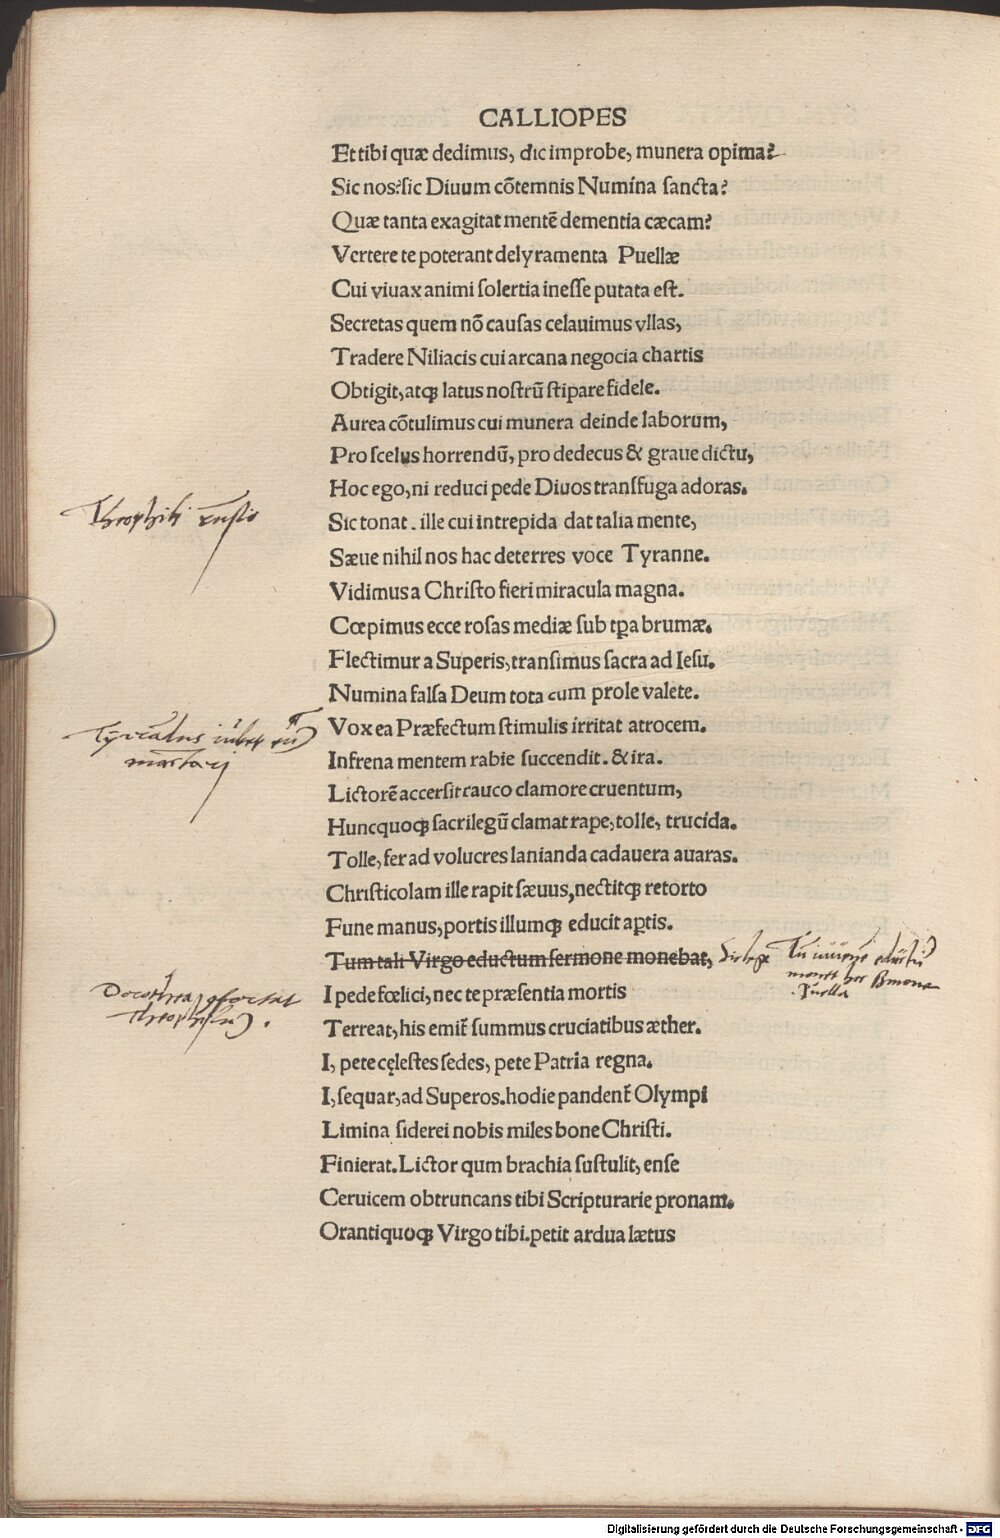 CALLIOPES
Et tibi quæ dedimus, dic improbe, munera opima?
Sic nos? sic Diuum cõtemnis Numina sancta?
Quæ tanta exagitat mentẽ dementia cæcam?
Vertere te poterant delyramenta Puellæ
Cui viuax animi solertia inesse putata est.
Secretas quem nõ causas celauimus vllas,
Tradere Niliacis cui arcana negocia chartis
Obtigit, atqꝫ latus nostrũ stipare fidele.
Aurea cõtulimus cui munera deinde laborum,
Pro scelus horrendũ, pro dedecus & graue dictu,
Hoc ego, ni reduci pede Diuos transfuga adoras.
Theophili
Sic tonat. ille cui intrepida dat talia mente,
Sæue nihil nos hac deterres voce Tyranne.
Vidimus a Christo fieri miracula magna.
Cœpimus ecce rosas mediæ sub tꝑa brumæ.
Flectimur a Superis, transimus sacra ad Iesu.
Numina falsa Deum tota cum prole valete.
Vox ea Præfectum stimulis irritat atrocem.
Infrena mentem rabie succendit. & ira.
Lictorẽ accersit rauco clamore cruentum,
Huncquoqꝫ sacrilegũ clamat rape, tolle, trucida.
Tolle, fer ad volucres lanianda cadauera auaras.
Christicolam ille rapit sæuus, nectitqꝫ retorto
Fune manus, portis illumqꝫ educit aꝑtis.
Tum tali Virgo eductum sermone monebat,
Puella
Dorothea
I pede fœlici, nec te præsentia mortis
Terreat, his emit̃ summus cruciatibus æther.
I, pete cęlestes sedes, pete Patria regna.
I, sequar, ad Superos. hodie pandent̃ Olympi
Limina siderei nobis miles bone Christi.
Finierat. Lictor qum brachia sustulit, ense
Ceruicem obtruncans tibi Scripturarie pronam.
Orantiquoqꝫ Virgo tibi. petit ardua lætus
Digitalisierung gefördert durch die Deutsche Forschungsgemeinschaft - DFG